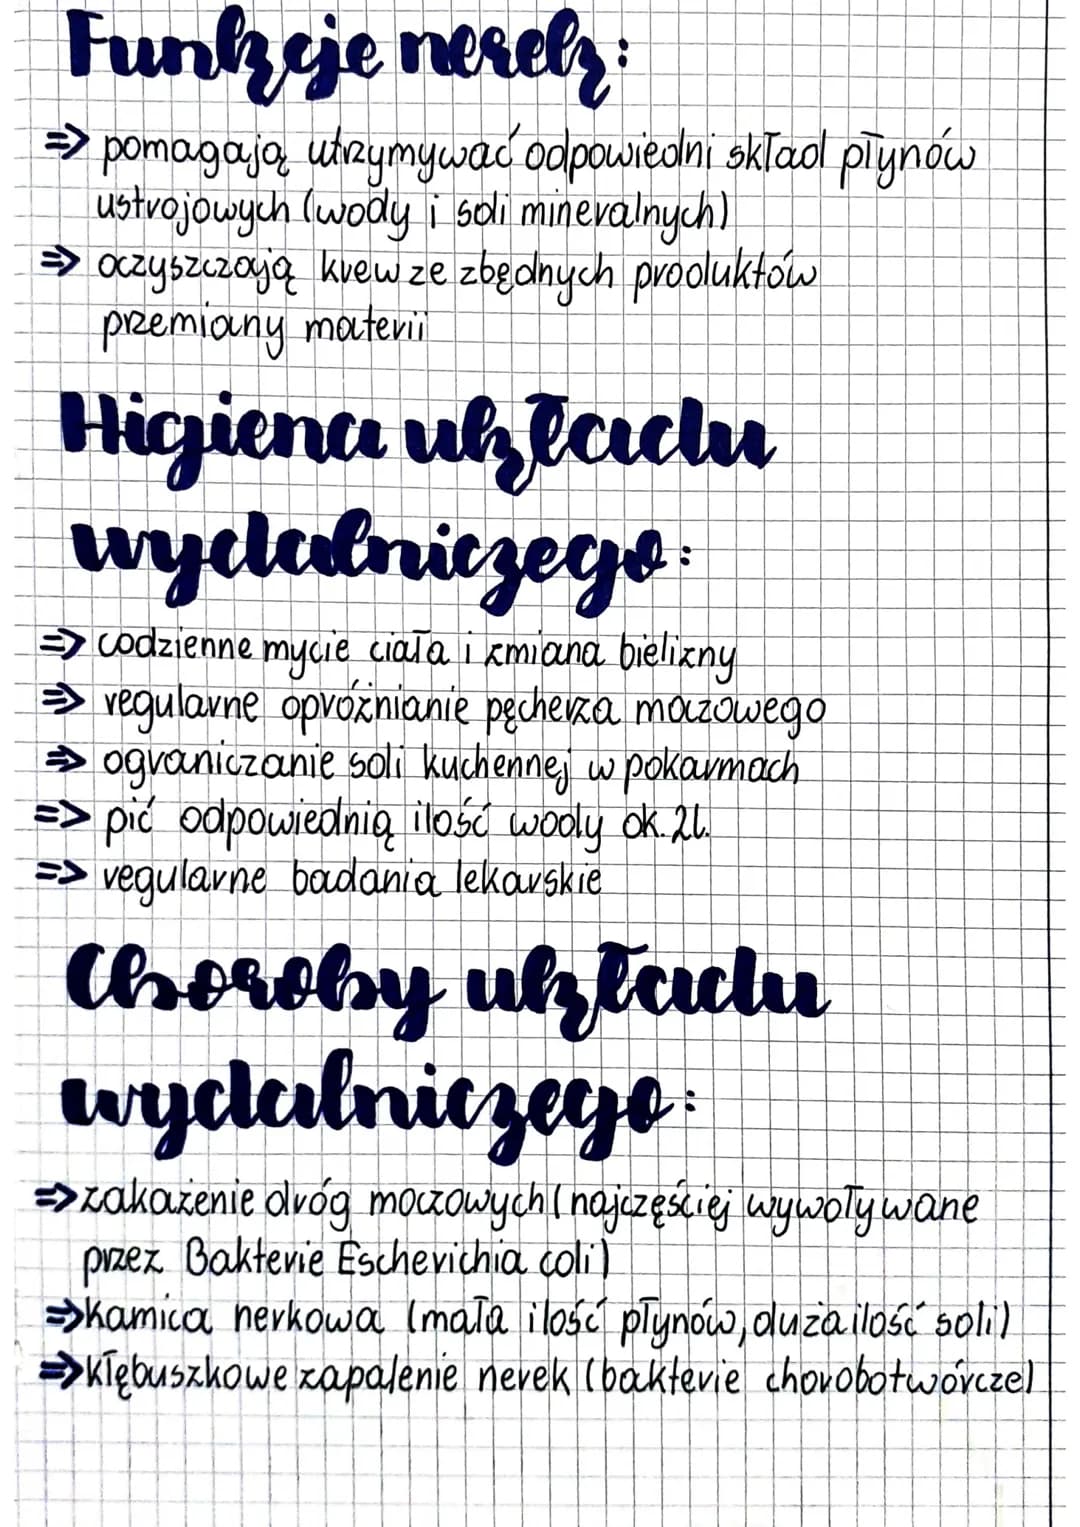 Funkcje nerek:
=> pomagają utrzymywać odpowiedni skład płynów
ustrojowych (wody i soli mineralnych)
=> oczyszczają krew ze zbędnych produktów
przemiany materii
Higiena układu
wydalniczego:
=> codzienne mycie ciała i zmiana bielizny
=> regularne opróżnianie pęcherza moczowego
=> ograniczanie soli kuchennej w pokarmach
=> pić odpowiednią ilość wody ok. 2l.
=> regularne badania lekarskie
Choroby układu
wydalniczego:
=> zakażenie dróg moczowych (najczęściej wywoływane
przez Bakterie Escherichia coli)
=> kamica nerkowa (mała ilość płynów, duża ilość soli)
=> kłębuszkowe zapalenie nerek (bakterie chorobotwórcze)